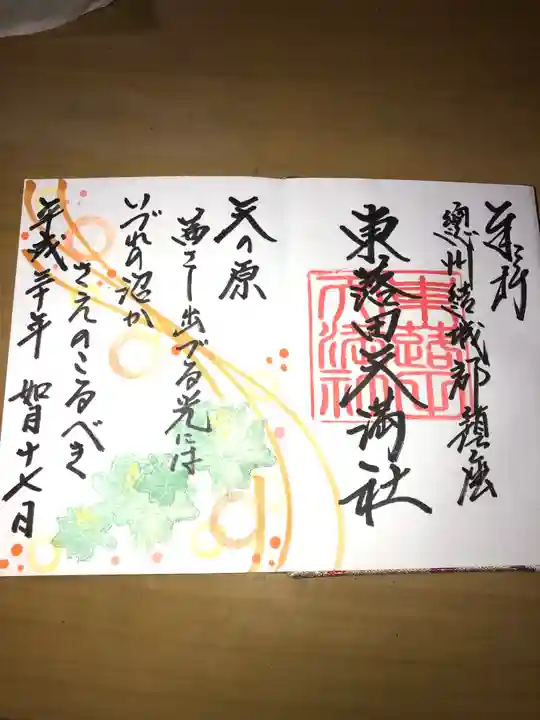 奉拝
總州結城郡鎮座
東蕗田天満社
天の原
茜さし出づる光には
いづれの沼か
さえのこるべき
平成三十年 如月十七日